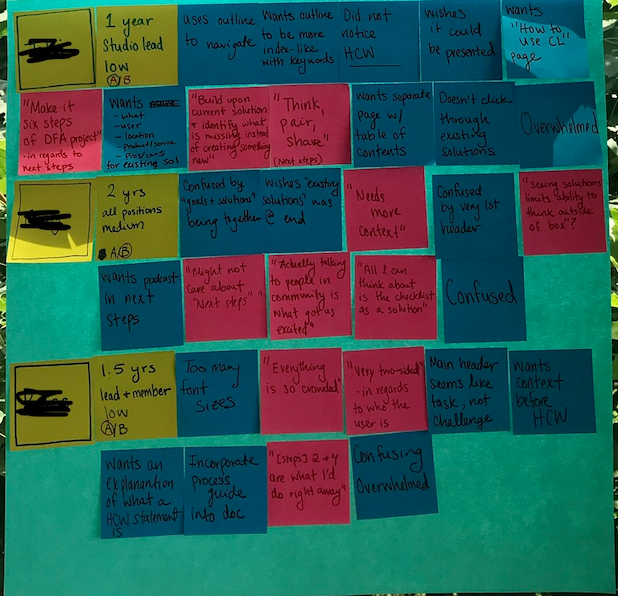 1 year
Studio lead
low
A/B
uses outline
to navigate
Wants outline
to be more
index-like
with keywords
Did not
notice
HCW
wishes
it could
be presented
wants
"How to
use CL"
page
"Make it
six steps
of DFA project"
- in regards to
next steps
Wants
- what
- user
- location
- Product/service
- Pros/cons
for existing sol
"Build upon
current solution
& identify what
is missing instead
of creating something
new"
"Think,
pair,
share"
(Next steps)
Wants separate
page w/
table of
contents
Doesn't click
through
existing
solutions
Overwhelmed
2 yrs
all positions
medium
A/B
Confused by
"goals + solutions"
being together
Wishes "existing
solutions" was
@ end
"Needs
more
context"
Confused
by very 1st
header
"seeing solutions
limits ability to
think outside
of box"?
Wants podcast
in next
steps
"Might not
care about
"Next steps""
"Actually talking
to people in
community is
what got us
excited"
"All I can
think about
is the checklist
as a solution"
Confused
1.5 yrs
lead + member
low
A/B
Too many
font
sizes
"Everything
is so crowded"
"Very two-sided"
- in regards
to who the
user is
Main header
seems like
task, not
challenge
Wants
context
before
HCW
Wants an
explanantion
of what a
HCW statement
is
Incorporate
process
guide
into doc
"[steps] 2 + 4
are what I'd
do right away"
Confusing
Overwhelmed